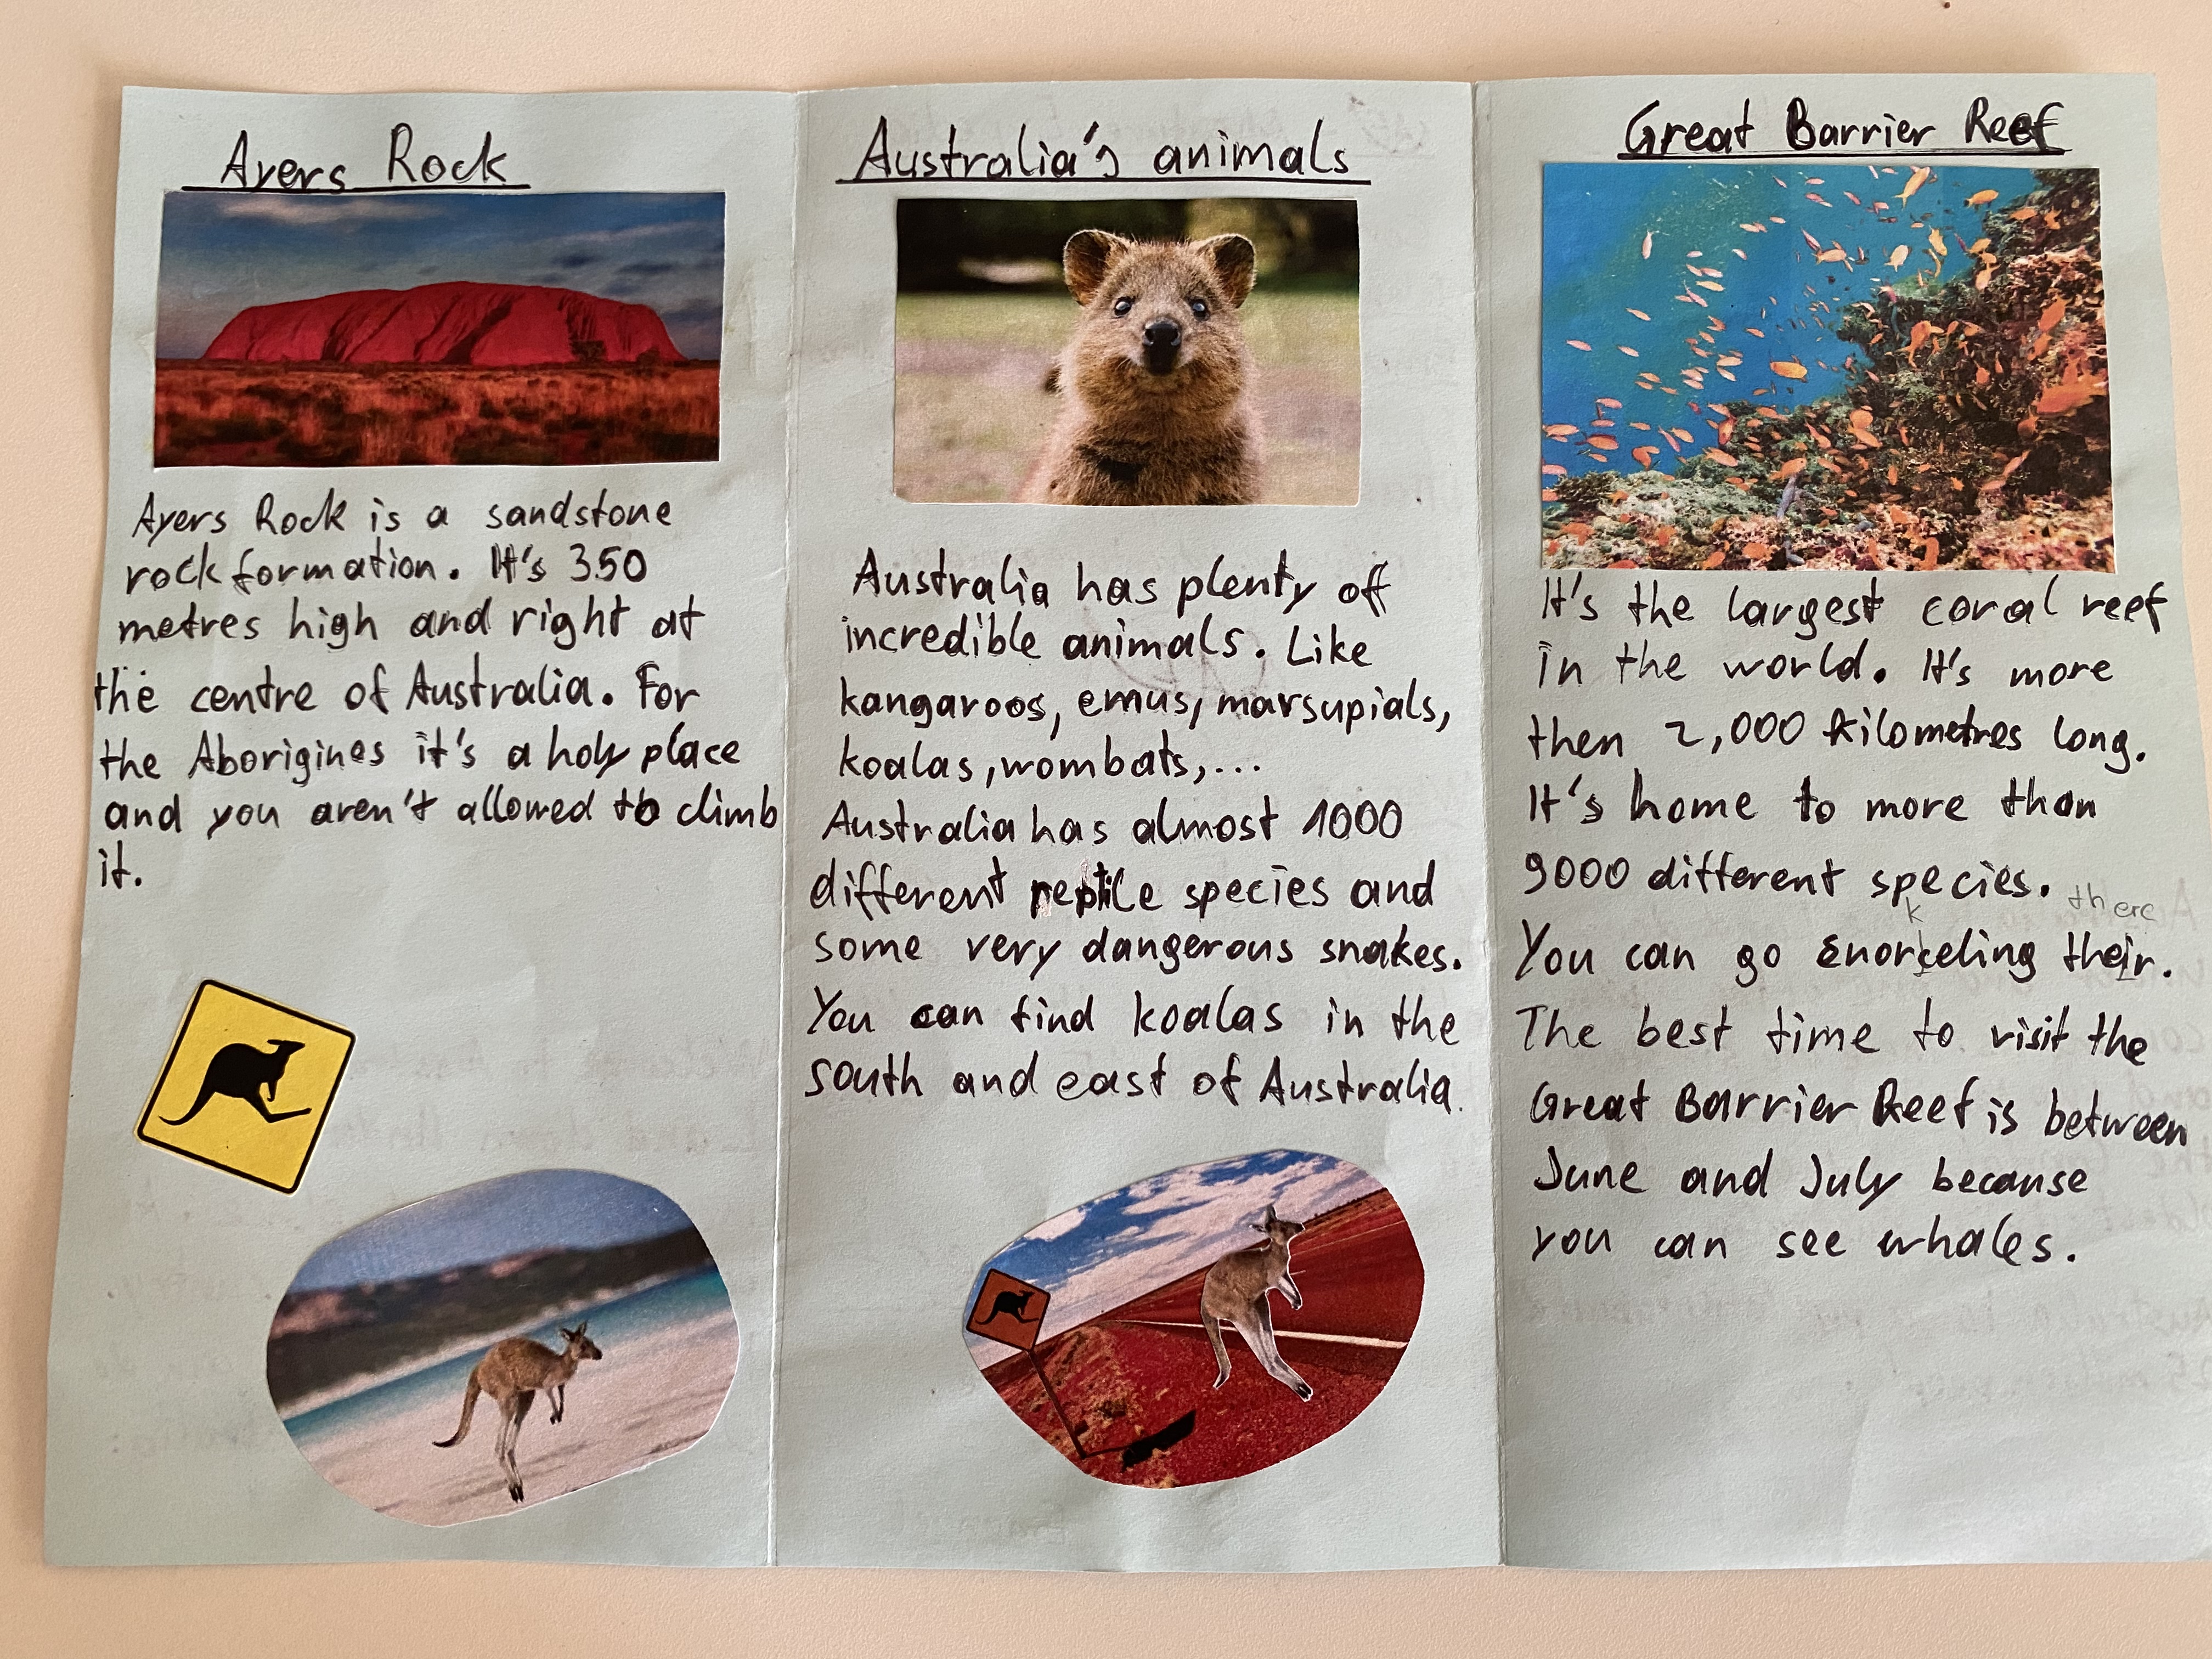 Ayers Rock
Ayers Rock is a sandstone
rock formation. It's 350
metres high and right at
the centre of Australia. For
the Aborigines it's a holy place
and you aren't allowed to climb
it.
Australia's animals
Australia has plenty of
incredible animals. Like
kangaroos, emus, marsupials,
koalas, wombats,...
Australia has almost 1000
different reptile species and
some very dangerous snakes.
You can find koalas in the
south and east of Australia.
Great Barrier Reef
It's the largest coral reef
in the world. It's more
then 2,000 kilometres long.
It's home to more than
9000 different species.
k there
You can go snorceling their.
The best time to visit the
Great Barrier Reef is between
June and July because
you can see whales.